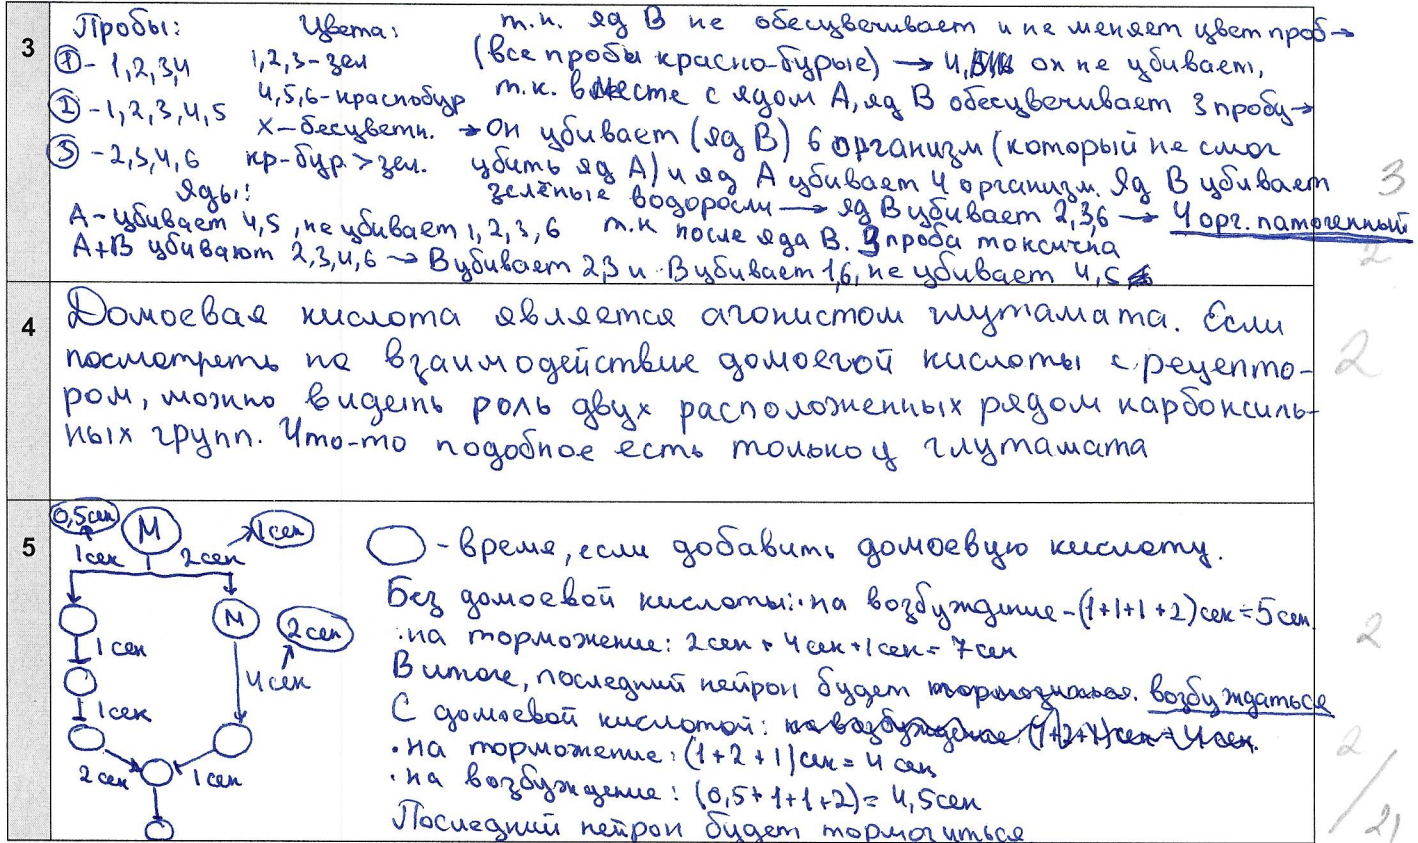 3
Пробы:
① - 1,2,3,4
② - 1,2,3,4,5
③ - 2,3,4,6
Цвета:
1,2,3 - зел
4,5,6 - краснобур
X - бесцветн.
кр-бур > зел.
Яды:
А - убивает 4,5, не убивает 1,2,3,6
А+В убивают 2,3,4,6 → В убивает 2,3 и В убивает 1,6, не убивает 4,5
т.к. яд В не обесцвечивает и не меняет цвет проб →
(все пробы красно-бурые) → 4, он не убивает,
т.к. вместе с ядом А, яд В обесцвечивает 3 пробу →
→ Он убивает (яд В) 6 организм (который не смог
убить яд А) и яд А убивает 4 организм. Яд В убивает
зелёные водоросли → яд В убивает 2,3,6 → 4 орг. патогенный
т.к после яда В. 3 проба токсична
3
2
4
Домоевая кислота является агонистом глутамата. Если
посмотреть на взаимодействие домоегой кислоты с рецепто-
ром, можно видеть роль двух расположенных рядом карбоксиль-
ных групп. Что-то подобное есть только у глутамата
2
5
0,5сек
М
1сек
1сек
2сек
М
2сек
1сек
4сек
1сек
2сек
1сек
- время, если добавить домоевую кислоту.
Без домоевой кислоты: · на возбуждение - (1+1+1+2)сек = 5сек
· на торможение: 2сек + 4сек + 1сек = 7сек
В итоге, последний нейрон будет тормозиться. возбуждаться
С домоевой кислотой: на возбуждение: (1+2+1)сек = 4сек.
· на торможение: (1+2+1)сек = 4сек
· на возбуждение: (0,5+1+1+2) = 4,5сек
Последний нейрон будет тормозиться
2
2
/21